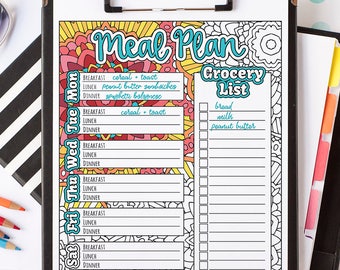 Meal Plan
Grocery List
Mon
Breakfast cereal + toast
Lunch peanut butter sandwiches
Dinner spaghetti bolognese
bread
milk
peanut butter
Tue
Breakfast cereal + toast
Lunch
Dinner
Wed
Breakfast
Lunch
Dinner
Thu
Breakfast
Lunch
Dinner
Fri
Breakfast
Lunch
Dinner
Sat
Breakfast
Lunch
Dinner